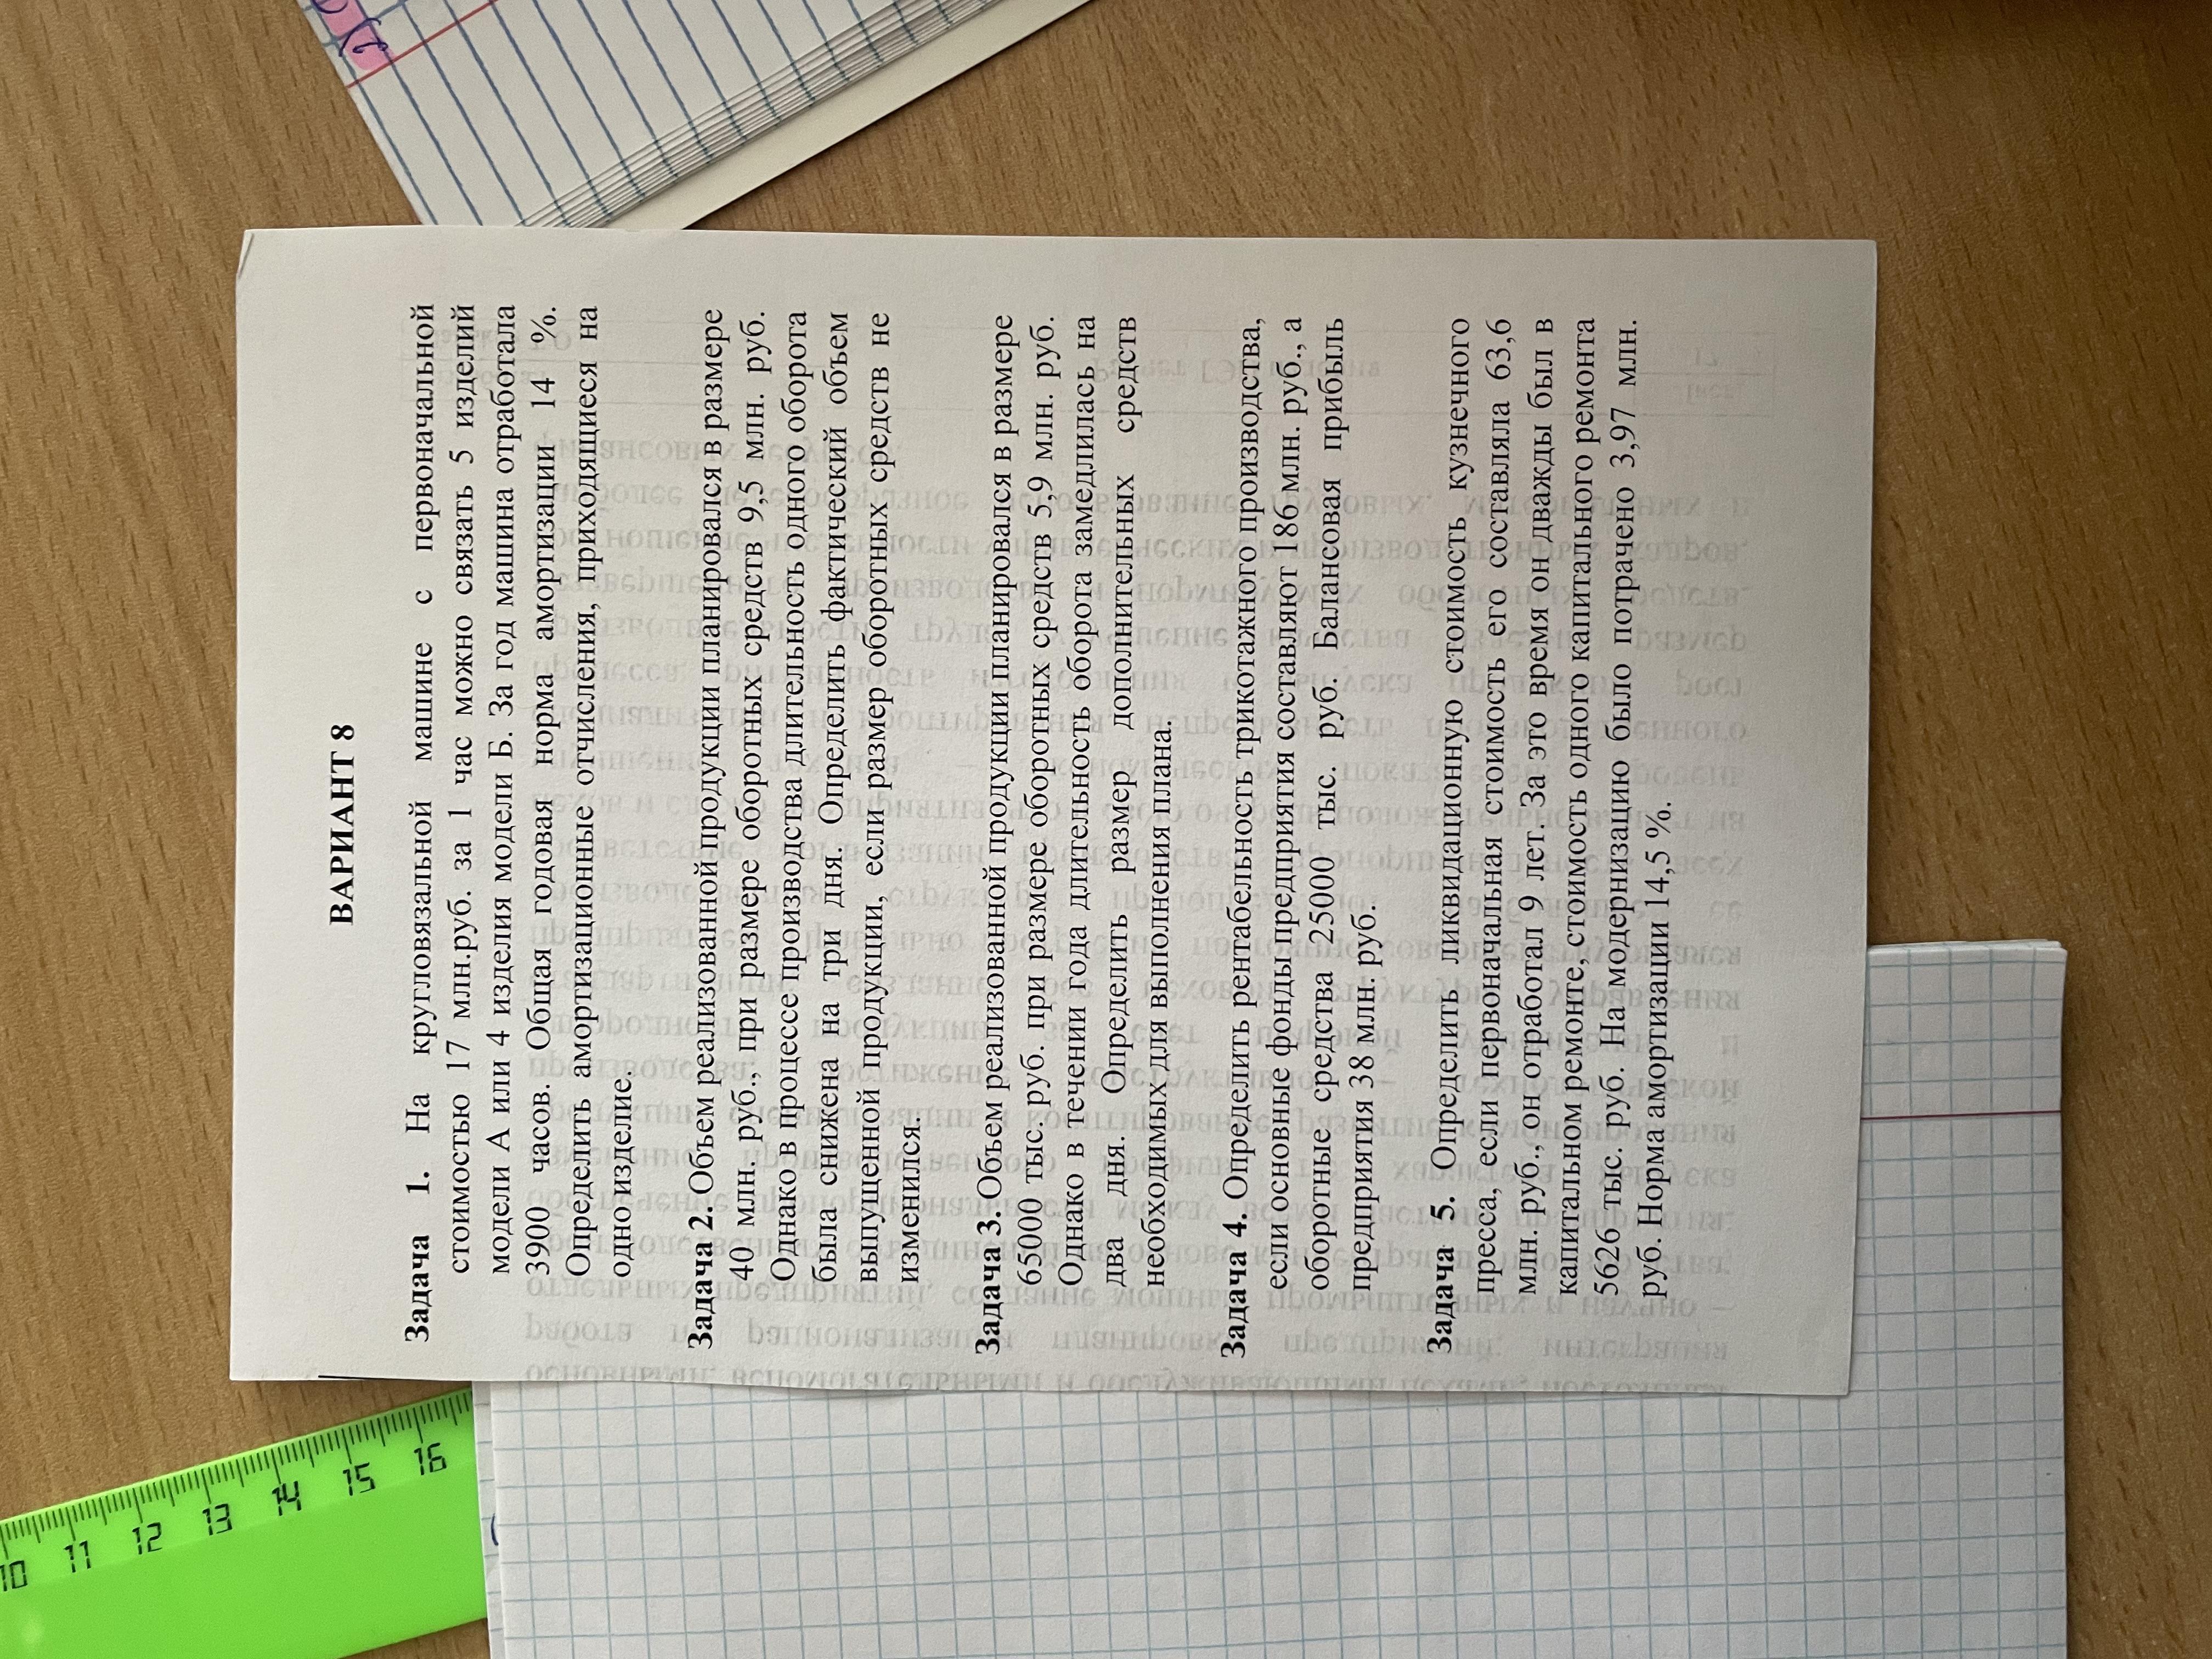 ВАРИАНТ 8
Задача 1. На кругловязальной машине с первоначальной
стоимостью 17 млн.руб. за 1 час можно связать 5 изделий
модели А или 4 изделия модели Б. За год машина отработала
3900 часов. Общая годовая норма амортизации 14 %.
Определить амортизационные отчисления, приходящиеся на
одно изделие.
Задача 2. Объем реализованной продукции планировался в размере
40 млн. руб., при размере оборотных средств 9,5 млн. руб.
Однако в процессе производства длительность одного оборота
была снижена на три дня. Определить фактический объем
выпущенной продукции, если размер оборотных средств не
изменился.
Задача 3. Объем реализованной продукции планировался в размере
65000 тыс. руб. при размере оборотных средств 5,9 млн. руб.
Однако в течении года длительность оборота замедлилась на
два дня. Определить размер дополнительных средств
необходимых для выполнения плана.
Задача 4. Определить рентабельность трикотажного производства,
если основные фонды предприятия составляют 186 млн. руб., а
оборотные средства 25000 тыс. руб. Балансовая прибыль
предприятия 38 млн. руб.
Задача 5. Определить ликвидационную стоимость кузнечного
пресса, если первоначальная стоимость его составляла 63,6
млн. руб., он отработал 9 лет. За это время он дважды был в
капитальном ремонте, стоимость одного капитального ремонта
5626 тыс. руб. На модернизацию было потрачено 3,97 млн.
руб. Норма амортизации 14,5 %.
10 11 12 13 14 15 16